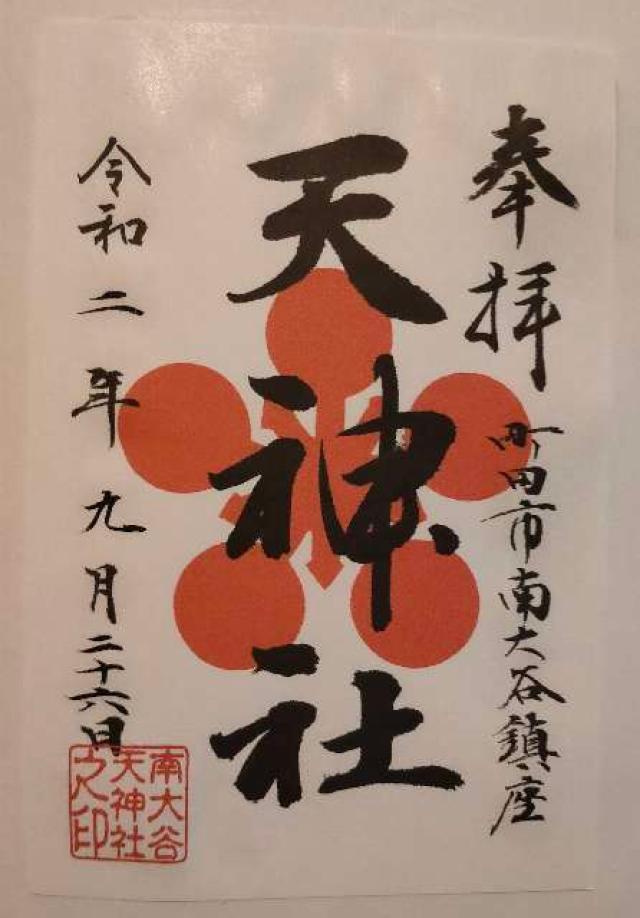 奉拝
町田市南大谷鎮座
天神社
令和二年九月二十六日
南大谷
天神社
之印